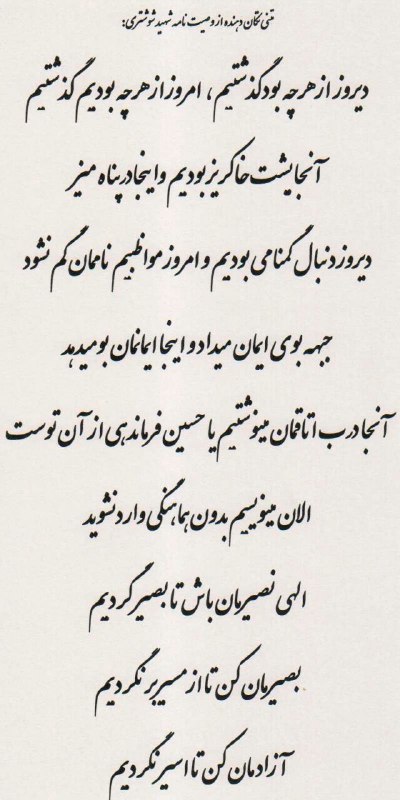 متنی تکان دهنده از وصیت نامه شهید شوشتری:
دیروز از هرچه بود گذشتیم، امروز از هرچه بودیم گذشتیم
آنجا پشت خاکریز بودیم و اینجا در پناه میز
دیروز دنبال گمنامی بودیم و امروز مواظبیم ناممان گم نشود
جبهه بوی ایمان میداد و اینجا ایمانمان بو میدهد
آنجا درب اتاقمان مینوشتیم یا حسین فرماندهی از آن توست
الان مینویسیم بدون هماهنگی وارد نشوید
الهی نصیرمان باش تا بصیر گردیم
بصیرمان کن تا از مسیر برنگردیم
آزادمان کن تا اسیر نگردیم